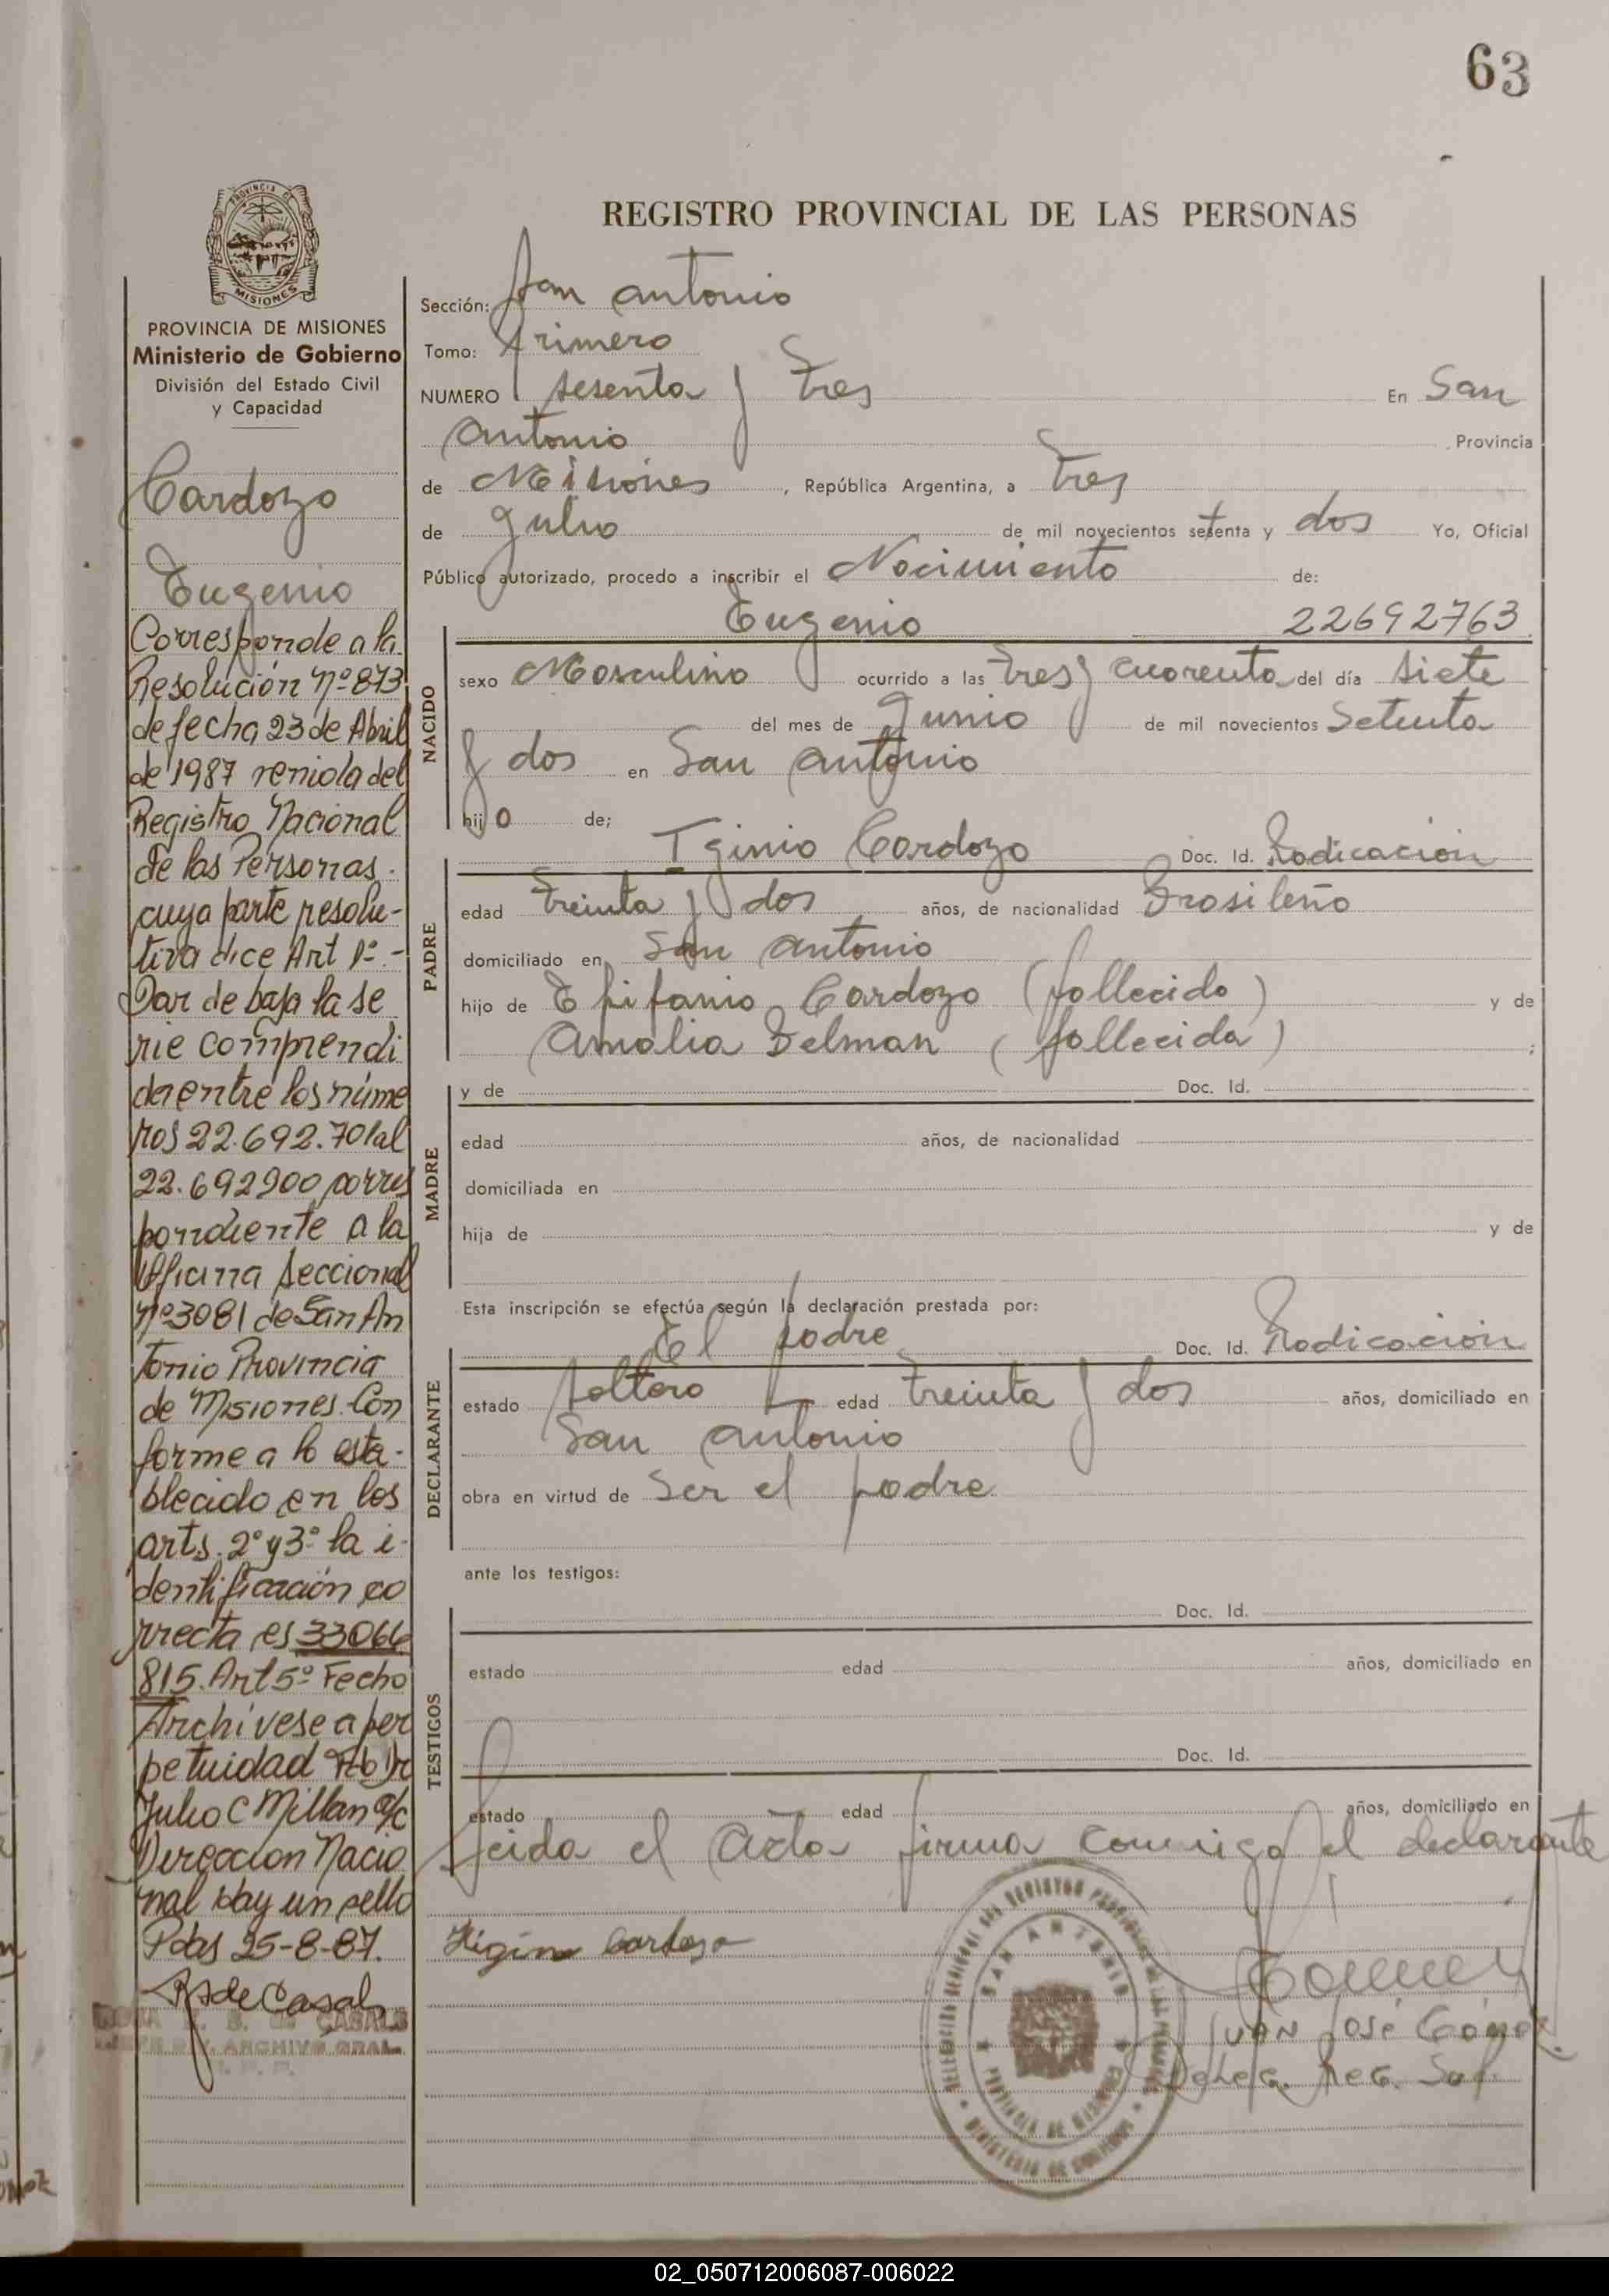 63
REGISTRO PROVINCIAL DE LAS PERSONAS
PROVINCIA
MISIONES
PROVINCIA DE MISIONES
Ministerio de Gobierno
División del Estado Civil
y Capacidad
Cardozo
Eugenio
Corresponde a la
Resolución Nº 873
de fecha 23 de Abril
de 1987 reniola del
Registro Nacional
de las Personas.
cuya parte resolu-
tiva dice Art 1º.-
Dar de baja la se
rie comprendi
da entre los núme
ros 22.692.701 al
22.692900 corres
pondiente a la
Oficina Seccional
nº 3081 de San An
tonio Provincia
de Misiones. Con
forme a lo esta-
blecido en los
arts. 2º y 3º la i-
dentificación co
rrecta es 33066
815. Art 5º Fecho
Archívese a per
petuidad Dr
Julio C Millan a/c
Dirección Nacio
nal Hay un sello
Pdas 25-8-87.
R S de Casals
CASALS
ARCHIVO GRAL.
Sección: San Antonio
Tomo: Primero
NUMERO sesenta y tres En San
Antonio Provincia
de Misiones, República Argentina, a tres
de Julio de mil novecientos setenta y dos Yo, Oficial
Público autorizado, procedo a inscribir el Nacimiento de:
Eugenio 22692763
NACIDO
sexo Masculino ocurrido a las tres y cuarenta del día siete
del mes de Junio de mil novecientos setenta
y dos en San Antonio
hijo de;
PADRE
Iginio Cardozo Doc. Id. Radicación
edad treinta y dos años, de nacionalidad Brasileño
domiciliado en San Antonio
hijo de Epifanio Cardozo (fallecido) y de
Amalia Delman (fallecida) ;
MADRE
y de Doc. Id.
edad años, de nacionalidad
domiciliada en
hija de y de
Esta inscripción se efectúa según la declaración prestada por:
DECLARANTE
El padre Doc. Id. Radicación
estado soltero edad treinta y dos años, domiciliado en
San Antonio
obra en virtud de ser el padre
ante los testigos:
TESTIGOS
Doc. Id.
estado edad años, domiciliado en
Doc. Id.
estado edad años, domiciliado en
Leida el Acta firma conmigo el declarante
Higino Cardozo
SAN ANTONIO
PROVINCIA DE MISIONES
MINISTERIO DE GOBIERNO
Gomez
JUAN José Gómez
DeLeG. ReG.
02_050712006087-006022